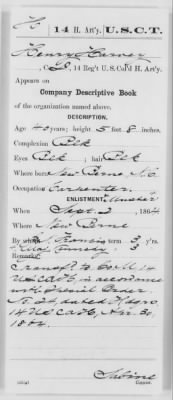 H 14 H. Art'y. U.S.C.T.
Henry Harvey
, Co. B, 14 Reg't U. S. Col'd H. Art'y.
Appears on
Company Descriptive Book
of the organization named above.
DESCRIPTION.
Age 40 years; height 5 feet 8 inches.
Complexion Blk
Eyes Blk ; hair Blk
Where born New Berne, N.C
Occupation Carpenter
ENLISTMENT.
When Sept. 2, 1864
Where New Berne
By whom Francis term 3 y'rs.
3
Remarks:
Transf'd to Co. 14
USCAH in accordance
with Special Order
No 24, dated Hdqrs
14 USCAH, Nov. 30
1864.
Sabine
Copyist.